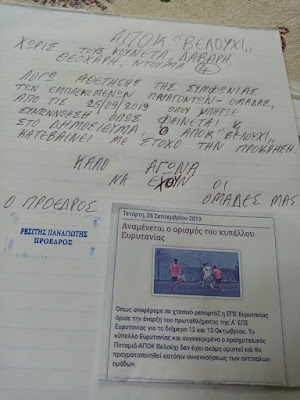 ΑΠΟΚ "ΒΕΛΟΥΧΙ"
ΧΩΡΙΣ ΤΟΥΣ ΚΟΥΝΕΤΑ, ΔΑΒΑΡΗ,
ΘΕΟΧΑΡΗ, ΝΤΟΥΜΑ 4
ΛΟΓΩ ΑΘΕΤΗΣΗΣ ΤΗΣ ΣΥΜΦΩΝΙΑΣ
ΤΩΝ ΕΜΠΛΕΚΟΜΕΝΩΝ ΠΑΡΑΓΟΝΤΩΝ - ΟΜΑΔΑΣ,
ΑΠΟ ΤΙΣ 25/09/2019 ΟΠΟΥ ΥΠΗΡΞΕ
ΣΥΝΕΝΝΟΗΣΗ, ΟΠΩΣ ΦΑΙΝΕΤΑΙ &
ΣΤΟ ΔΗΜΟΣΙΕΥΜΑ, Ο ΑΠΟΚ "ΒΕΛΟΥΧΙ"
ΚΑΤΕΒΑΙΝΕΙ ΜΕ ΣΤΟΧΟ ΤΗΝ ΠΡΟΚΡΙΣΗ.
ΚΑΛΟ ΑΓΩΝΑ
ΝΑ ΕΧΟΥΝ ΟΙ
ΟΜΑΔΕΣ ΜΑΣ
Ο ΠΡΟΕΔΡΟΣ
ΡΕΣΙΤΗΣ ΠΑΝΑΓΙΩΤΗΣ
ΠΡΟΕΔΡΟΣ
Τετάρτη, 25 Σεπτεμβρίου 2019
Αναμένεται ο ορισμός του κυπέλλου
Ευρυτανίας
Όπως αναφέραμε σε χτεσινό ρεπορτάζ η ΕΠΣ Ευρυτανίας
όρισε την έναρξη του πρωταθλήματος της Α' ΕΠΣ
Ευρυτανίας για το διήμερο 12 και 13 Οκτωβρίου. Το
κύπελλο Ευρυτανίας και συγκεκριμένα ο προημιτελικός
Ποταμιά-ΑΠΟΚ Βελούχι δεν έχει ακόμη οριστεί και θα
πραγματοποιηθεί κατόπιν συνεννοήσεως των αντίπαλων
ομάδων.